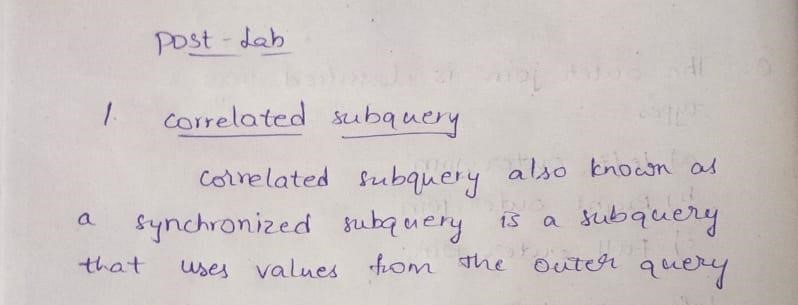 Post - Lab
1. correlated subquery
correlated subquery also known as
a synchronized subquery is a subquery
that uses values from the outer query